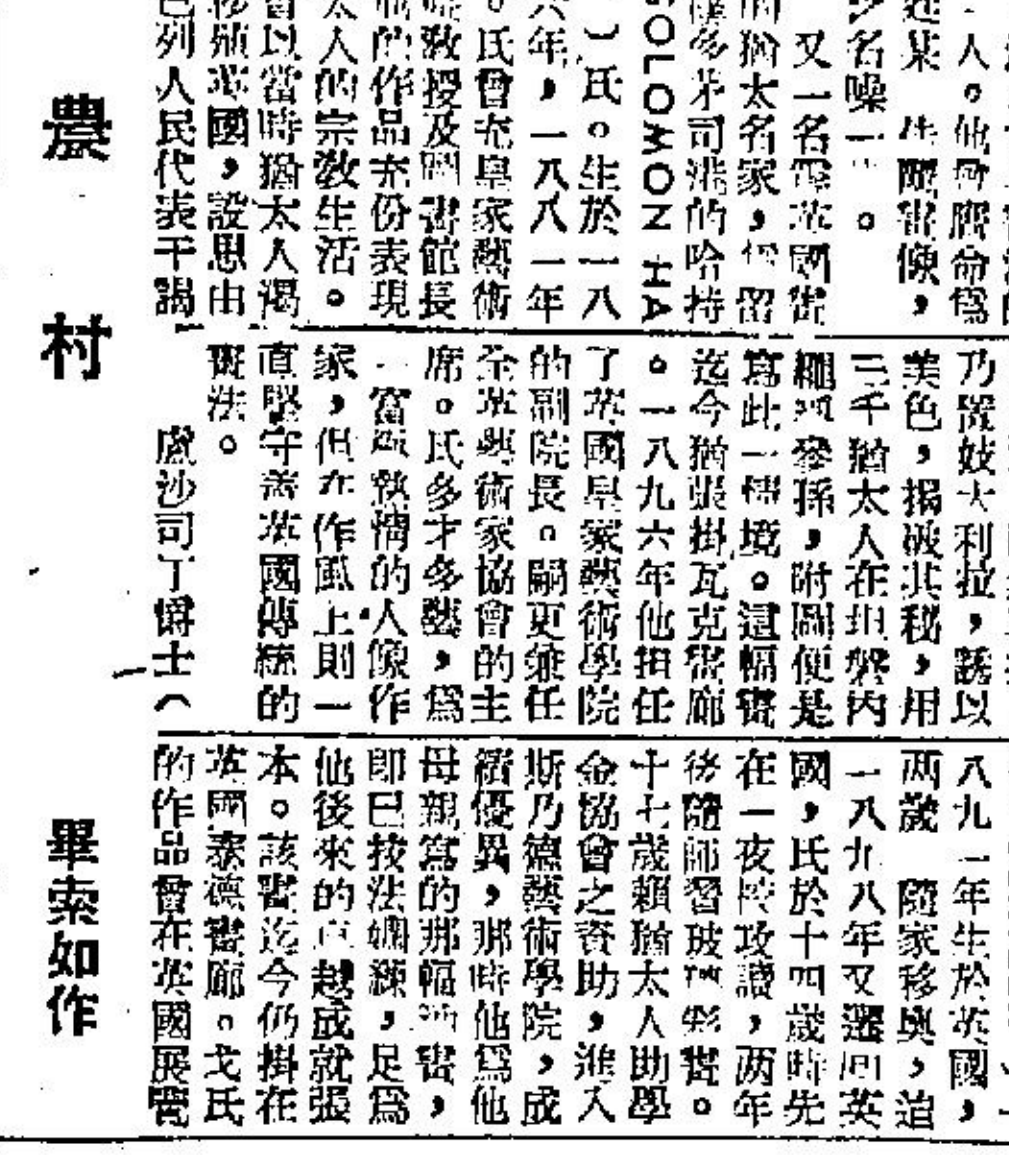 人。他曾膺命爲
某 畫像，
名噪一 。
又一名 英國畫
的猶太名家，但留
司港的哈特
SOLOMON HA
）氏。生於一八
六年，一八八一年
。氏曾充皇家藝術
教授及圖書館長
的作品充份表現
太人的宗教生活。
會以當時猶太人渴
移殖英國，設思由
已列人民代表干謁
乃 妓大利拉，誘以
美色，揭破其秘，用
三千猶太人在坦 內
繩 參孫，附圖便是
寫此一情境。這幅畫
迄今猶張掛瓦克畫廊
。一八九六年他担任
了英國皇家藝術學院
的副院長。嗣更兼任
全英藝術家協會的主
席。氏多才多藝，爲
一富於熱情的人像作
家，但在作風上則一
直堅守着英國傳統的
法。
盧沙司丁爵士（
八九一年生於英國，
兩歲 隨家移奧，迨
一八九八年又還回英
國，氏於十四歲時先
在一夜校攻讀，兩年
後隨師習玻璃彩畫。
十七歲賴猶太人助學
金協會之資助，進入
斯乃德藝術學院，成
績優異，那時他爲他
母親寫的那幅 畫，
即已技法嫻練，足爲
他後來的卓越成就張
本。該畫迄今仍掛在
英國泰德畫廊。戈氏
的作品曾在英國展覽
農村
畢索如作